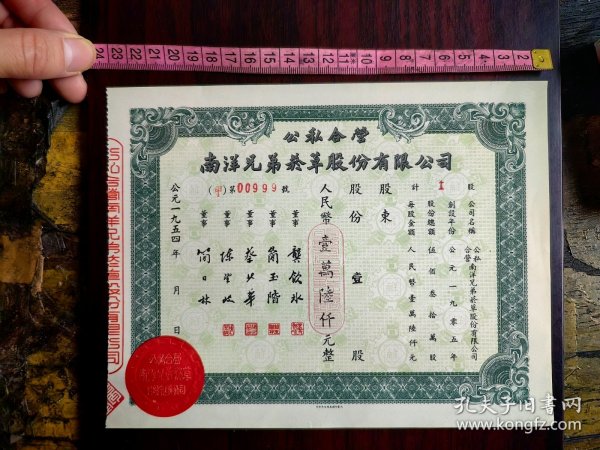 公私合營
南洋兄弟菸草股份有限公司
計 1 股
公司名稱 公私合營南洋兄弟菸草股份有限公司
創設年份 公元一九零五年
股份總額 伍佰叁拾萬股
每股金額 人民幣壹萬陸仟元
股東
股份 壹 股
人民幣壹萬陸仟元整
(甲)第00999號
董事 龔飲冰
董事 簡玉階
董事
董事
董事 簡日林
公元一九五四年 月 日
24 23 22 21 20 19 18 17 16 15 14 13 12 11 10 9 8 7 6 5 4 3 2
孔夫子旧书网
www.kongfz.com